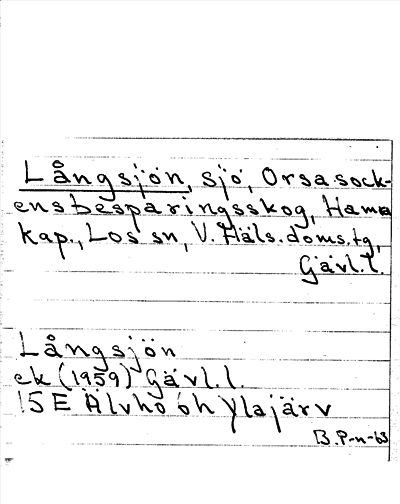 Långsjön, sjö, Orsasock-
ensbesparingsskog, Hamra
kap., Los sn, V. Häls. doms.tg,
Gävl.l.
Långsjön
ek (1959) Gävl.l.
15E Älvho 6h Ylajärv
B.P-n-63